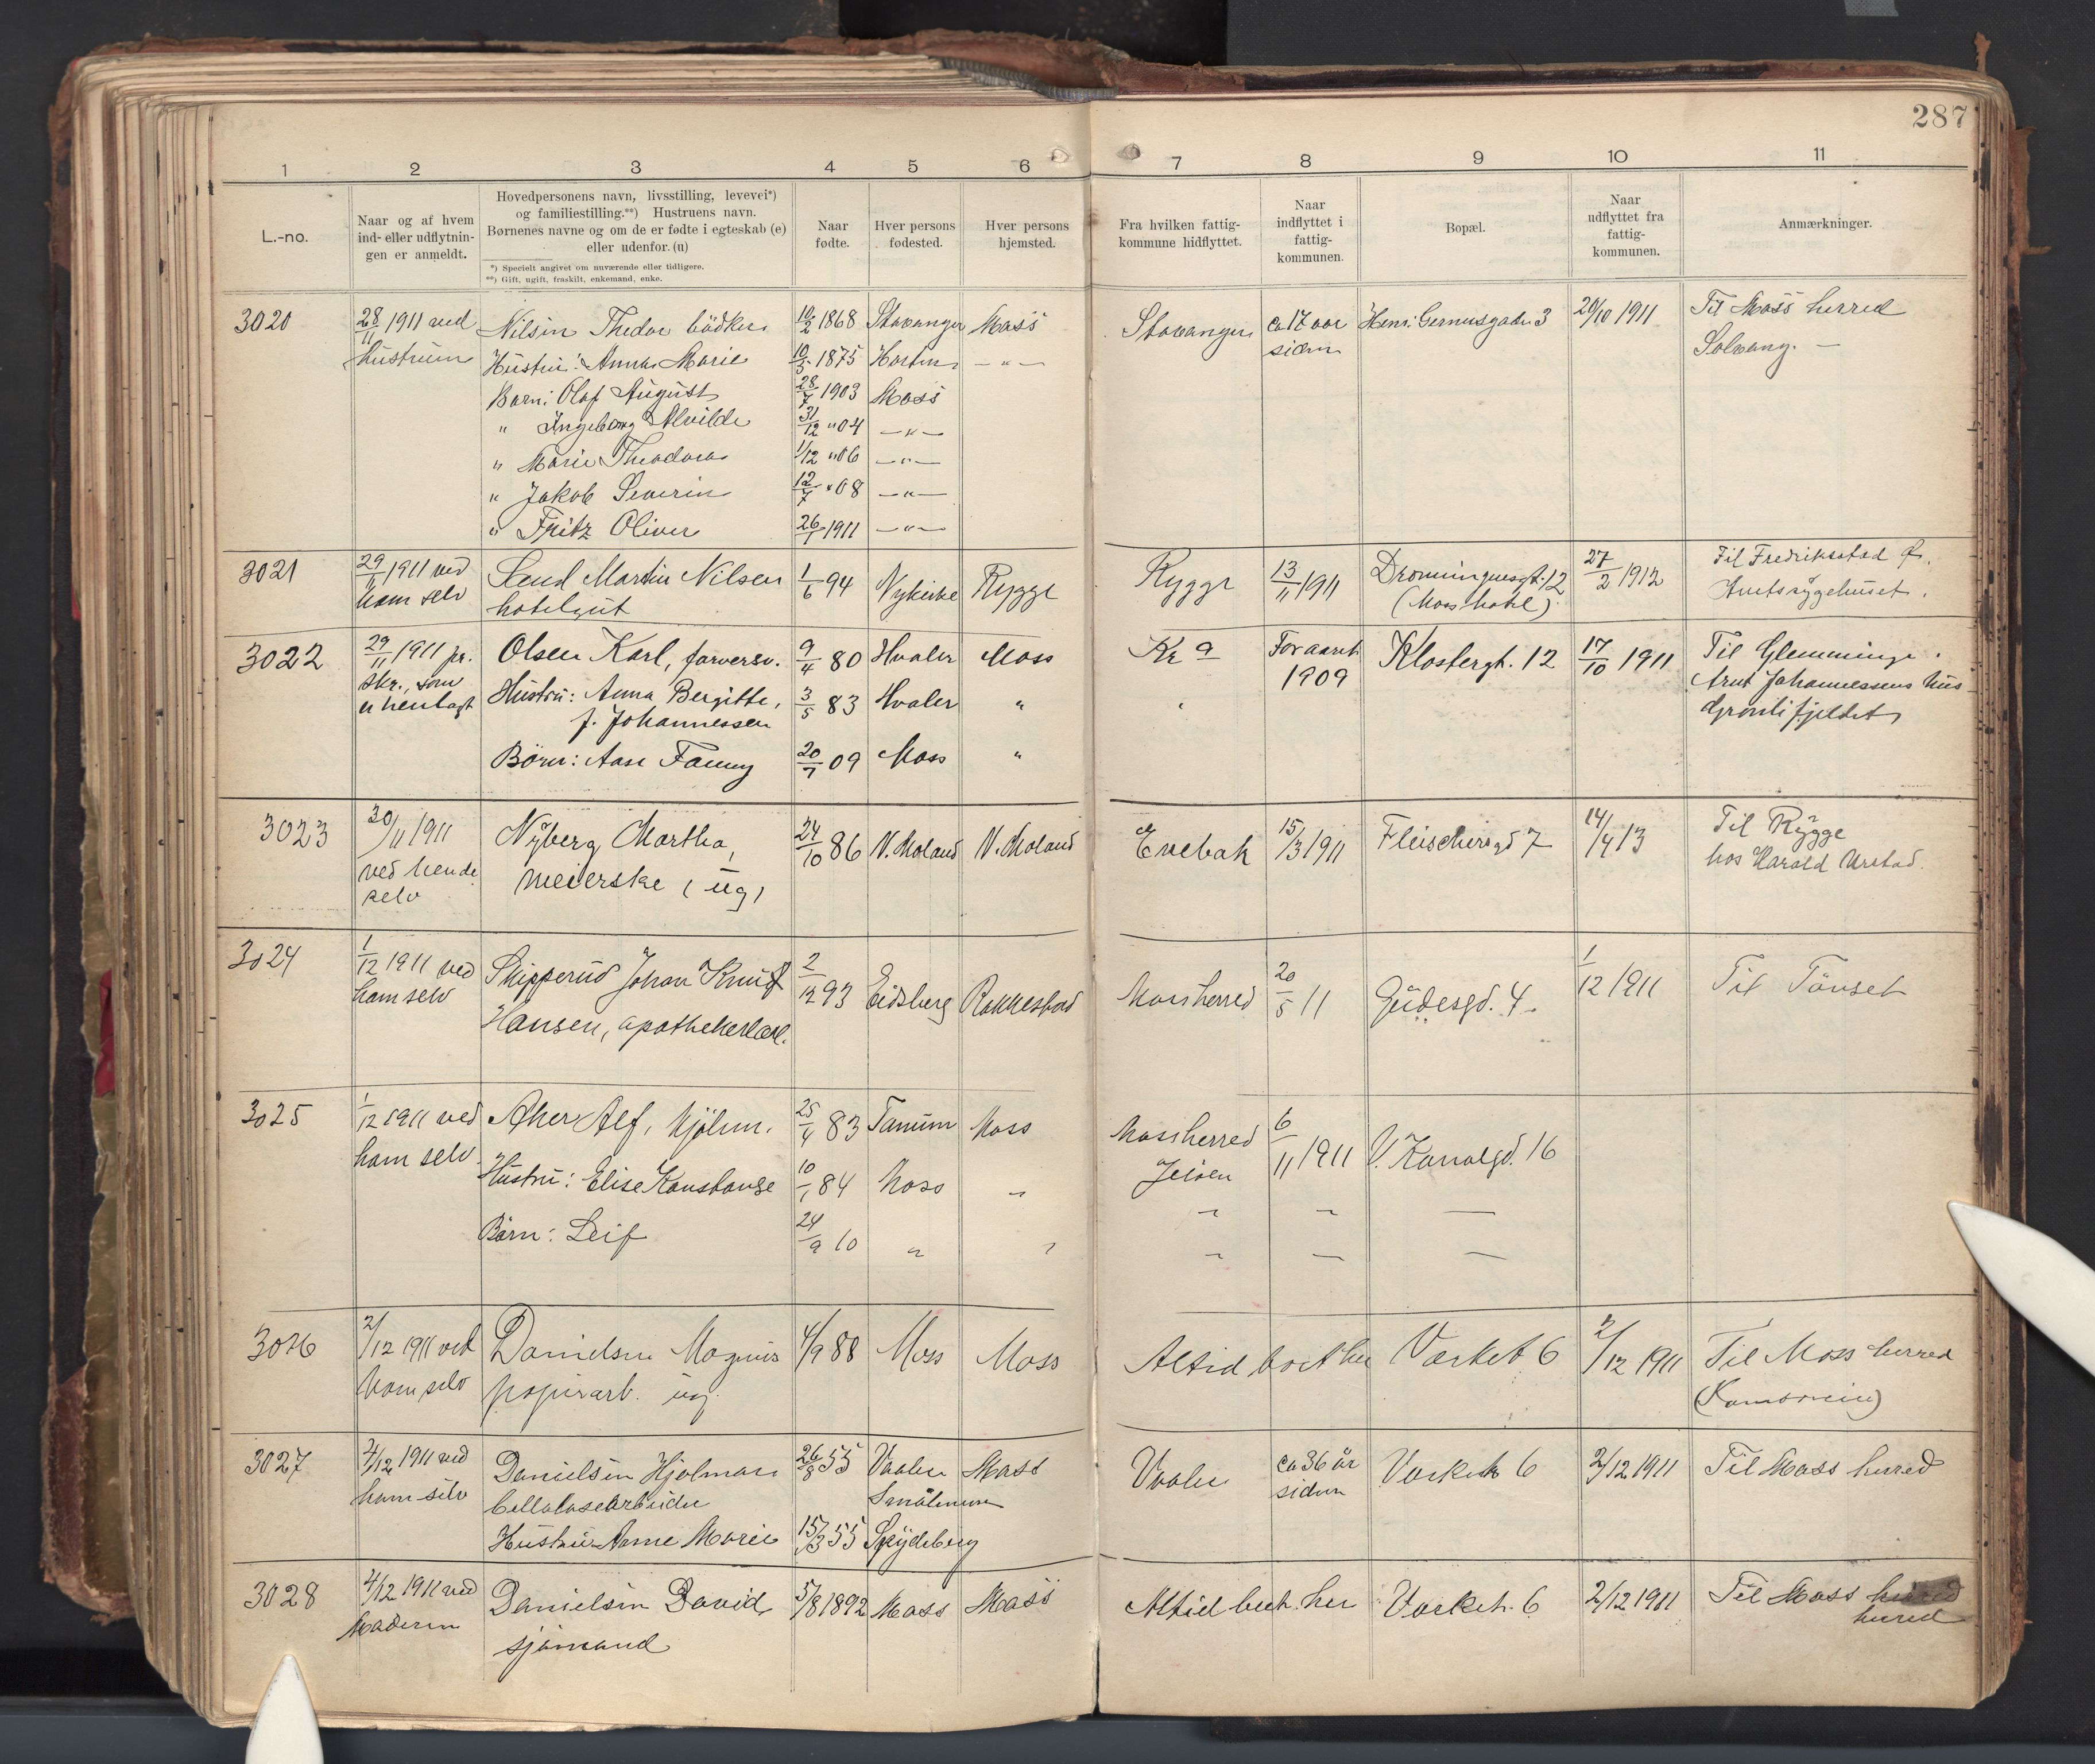 287
1 2 3 4 5 6 7 8 9 10 11
L.-no.
Naar og af hvem
ind- eller udflytnin-
gen er anmeldt.
Hovedpersonens navn, livsstilling, levevei*)
og familiestilling.**) Hustruens navn.
Børnenes navne og om de er fødte i egteskab (e)
eller udenfor. (u)
*) Specielt angivet om nuværende eller tidligere.
**) Gift, ugift, fraskilt, enkemand, enke.
Naar
fødte.
Hver persons
fødested.
Hver persons
hjemsted.
Fra hvilken fattig-
kommune hidflyttet.
Naar
indflyttet i
fattig-
kommunen.
Bopæl.
Naar
udflyttet fra
fattig-
kommunen.
Anmærkninger.
3020 28/11 1911 ved Nilsen Thedor bödker 10/2 1868 Stavanger Moss Stavanger ca 17 aar 3 20/10 1911 Til Moss herred
hustruen Hustru: Anna Marie 10/5 1875 Horten — " — siden Solvang. —
Barn: Olaf August 28/7 1903 Moss
" Ingeborg Alvilde 31/12 "04 — " —
" Marie Theodora 1/12 "06 — " —
" Jakob Severin 12/7 "08 — " —
" Fritz Oliver 26/1 1911 — " —
3021 29/11 1911 ved Sand Martin Nilsen 1/6 94 Nykirke Rygge Rygge 13/11 1911 Dronningensgt. 12 27/2 1912 Til Fredrikstad
ham selv hotelgut (Moss hotel) Amtssygehuset.
3022 29/11 1911 pr. Olsen Karl, farversv. 9/4 80 Hvaler Moss Kra For aaret Klostergt. 12 17/10 1911 Til Glemminge
skr., som Hustru: Anna Bergitte, 3/5 83 Hvaler " " 1909 Arnt Johannessens hus
er henlagt f. Johannessen
Börn: Aase Fanny 20/7 09 Moss "
3023 30/11 1911 Nyberg Martha, 24/10 86 V. Moland V. Moland Enebak 15/3 1911 Fleischersgd 7 14/4 13 Til Rygge
ved hende meierske (ug) hos Harald Urstad.
selv
3024 1/12 1911 ved Skipperud Johan Knut 2/12 93 Eidsberg Rakkestad Moss herred 20/5 11 Gudesgd. 4. 1/12 1911 Til Tönset
ham selv Hansen, apothekerlærl.
3025 1/12 1911 ved Aker Alf, kjølm. 25/4 83 Tanum Moss Moss herred 6/11 1911 V. Kanalgd. 16
ham selv. Hustru: Elise Konstanse 10/1 84 Moss " Jeløen
Börn: Leif 24/9 10 " "
3026 2/12 1911 ved Danielsen Magnus 4/9 88 Moss Moss Altid boet her Værket 6 2/12 1911 Til Moss herred
ham selv papirarb. ug.
3027 4/12 1911 ved Danielsen Hjalmar 26/8 55 Vaaler Moss Vaaler ca 36 år Værket 6 2/12 1911 Til Moss herred
ham selv Cellulosearbeider Smålenene siden
Hustru Anne Marie 15/3 55 Spydeberg
3028 4/12 1911 ved Danielsen David 5/8 1892 Moss Moss Altid boet her Værket 6 2/12 1911 Til Moss herred
Moderen sjömand herred